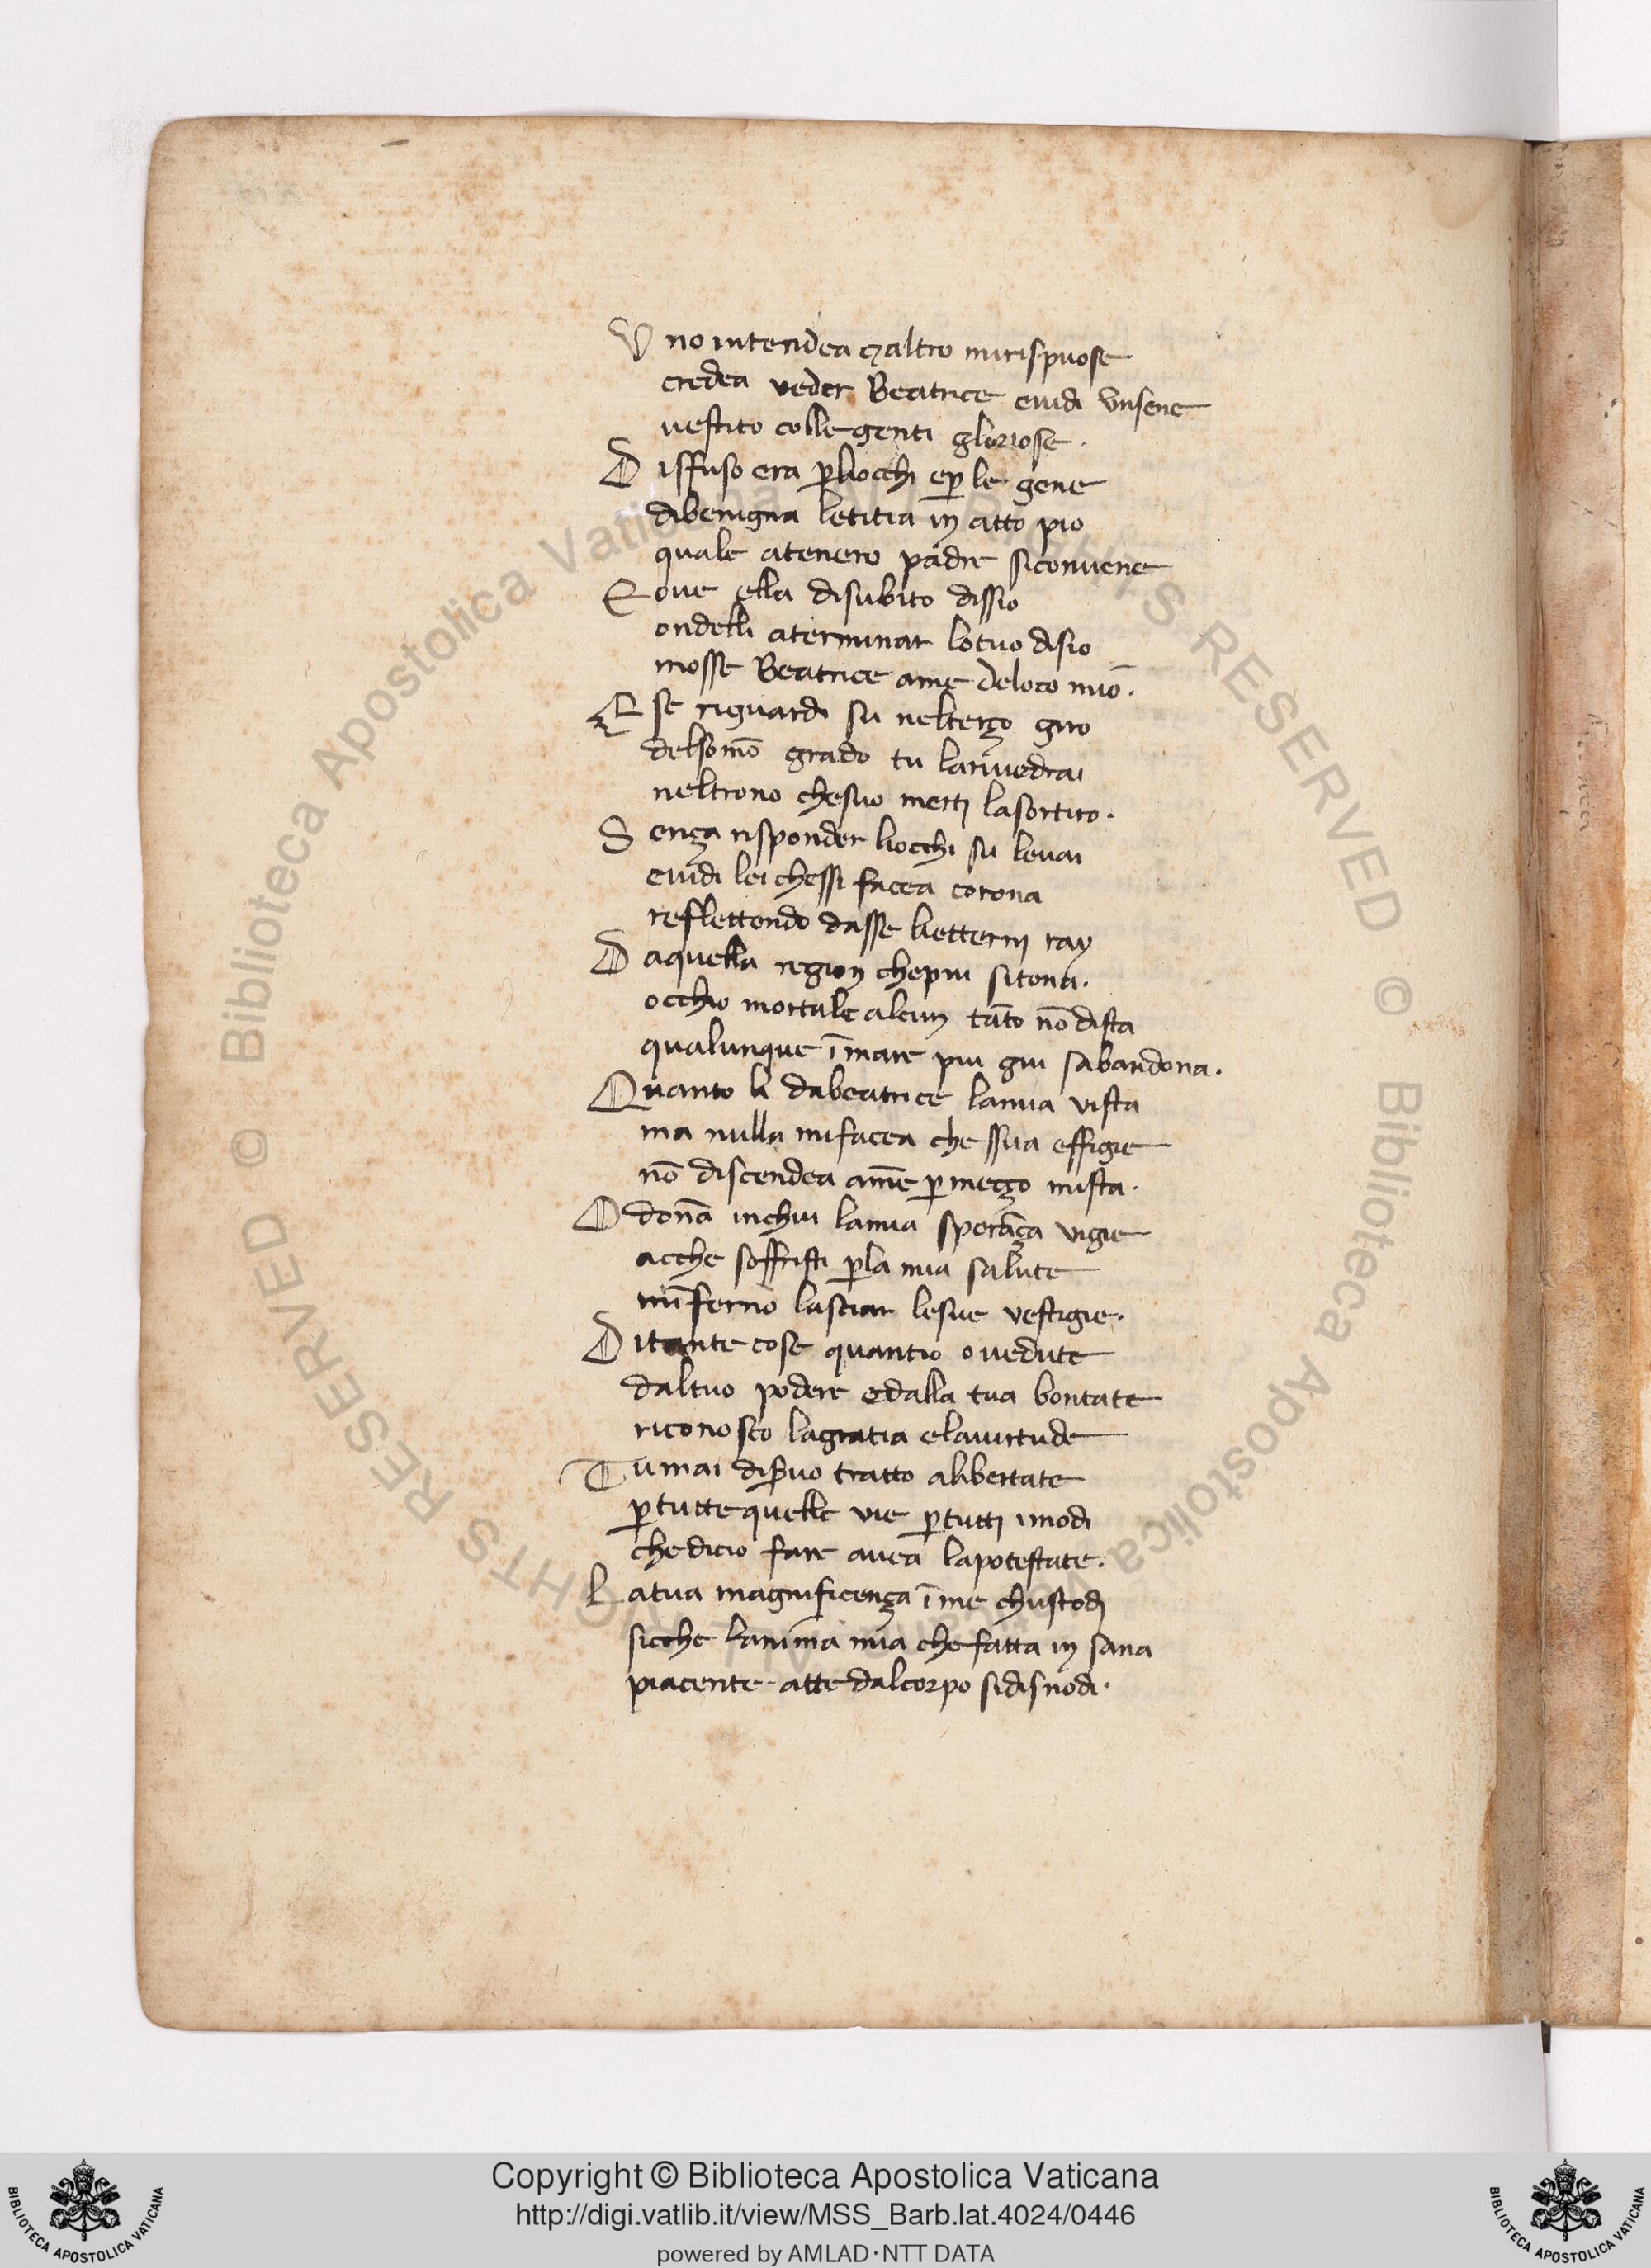 U no intendea ⁊altro mirispuose
credea veder Beatrice euidi vnsene
uestito collegenti gloriose.
D iffuso era ꝑliocchi eꝑ le gene
dibenigna letitia in atto pio
quale atenero padre siconuene
E oue ella disubito dissio
ondelli aterminar lotuo disio
mosse Beatrice ame deloco mio.
E se riguardi su nelterço giro
delsomō grado tu lariuedrai
neltrono chesuo merti lasortiro.
S ença risponder liocchi su leuai
euidi lei chessi facea corona
reflettendo dasse lietterni ray
D aquella region chepiu sitona.
occhio mortale alcun tāto nō dista
qualunque ī mare piu giu sabandona.
Quanto li dabeatrice lamia vista
ma nulla mifacea che ssua effigie
nō discendea amē ꝑ meçço mista.
O donā inchui lamia sperāça vigie
acche soffristi ꝑla mia salute
mīferno lasciar lesue vestigie.
D itante cose quantio o uedute
daltuo podere edalla tua bontate
riconosco lagratia elauirtude
T u mai diseruo tratto alibertate
ꝑ tutte quelle vie ꝑ tutti imodi
che dicio fare auea lapotestate.
L atua magnificença ī me chustodi
sicche lanima mia che fatta in sana
piacente atte dalcorpo sidisnodi.
© Biblioteca Apostolica Vaticana ALL RIGHTS RESERVED © Biblioteca Apostolica Vaticana ALL RIGHTS RESERVED
Copyright © Biblioteca Apostolica Vaticana
http://digi.vatlib.it/view/MSS_Barb.lat.4024/0446
powered by AMLAD·NTT DATA
BIBLIOTECA APOSTOLICA VATICANA
BIBLIOTECA APOSTOLICA VATICANA